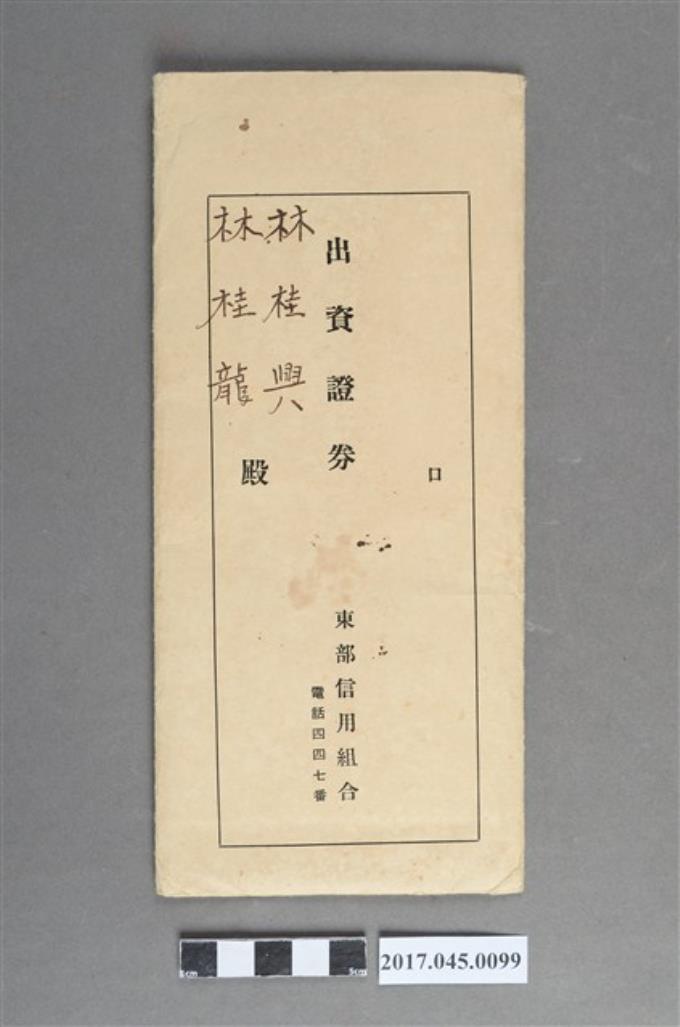 口
出資證券
東部信用組合
電話四四七番
林桂興
林桂龍
殿
5cm
2017.045.0099